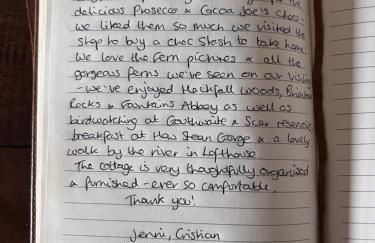 delicious Prosecco & Cocoa Joe's choc -
we liked them so much we visited the
shop to buy a choc stash to take home!
We love the fern pictures & all the
gorgeous ferns we've seen on our visiting
- we've enjoyed Hackfall Woods, Brimham
Rocks & Fountains Abbey as well as
birdwatching at Gouthwaite & Scar reservoir,
breakfast at How Stean Gorge & a lovely
walk by the river in Lofthouse.
The cottage is very thoughtfully organised
& furnished - ever so comfortable.
Thank you!
Jenni, Cristian